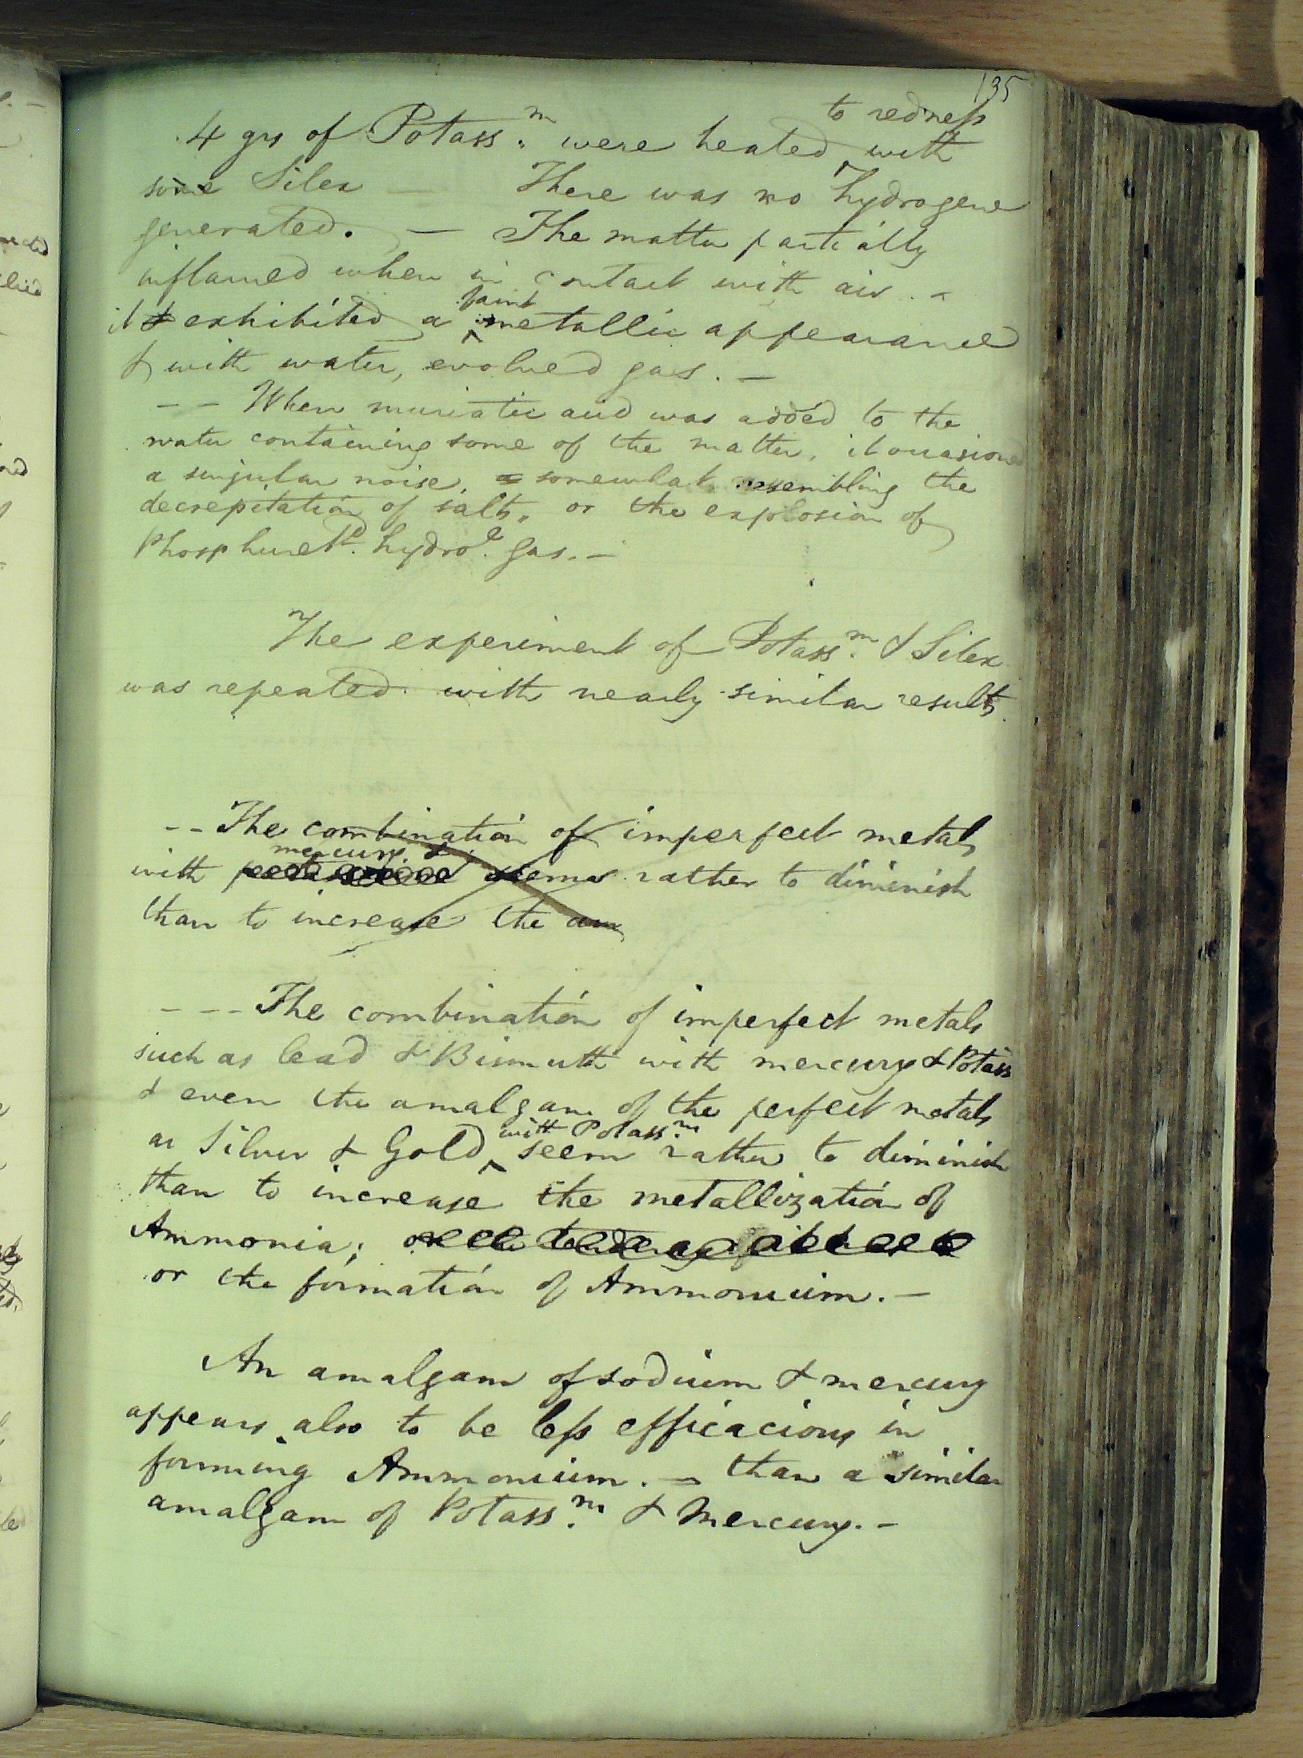 135
to redness
4 grs of Potassm. were heated with
some Silex — There was no hydrogene
generated. — The matter partially
inflamed when in contact with air. –
faint
it exhibited a metallic appearance
& with water, evolved gas. —
– – When muriatic acid was added to the
water containing some of the matter, it occasioned
a singular noise, somewhat resembling the
decrepitation of salts, or the explosion of
Phosphuretd. hydroe. gas. –
The experiment of Potassm. & Silex
was repeated with nearly similar results.
– – The combination of imperfect metals
mercury &
with potassium seems rather to diminish
than to increase the am
– – – The combination of imperfect metals
such as lead & Bismuth with mercury & Potass
& even the amalgam of the perfect metals
with Potassm.
as Silver & Gold seem rather to diminish
than to increase the metallization of
Ammonia;
or the formation of Ammonium. –
An amalgam of sodium & mercury
appears also to be less efficacious in
forming Ammonium. – than a similar
amalgam of Potassm. & Mercury. –